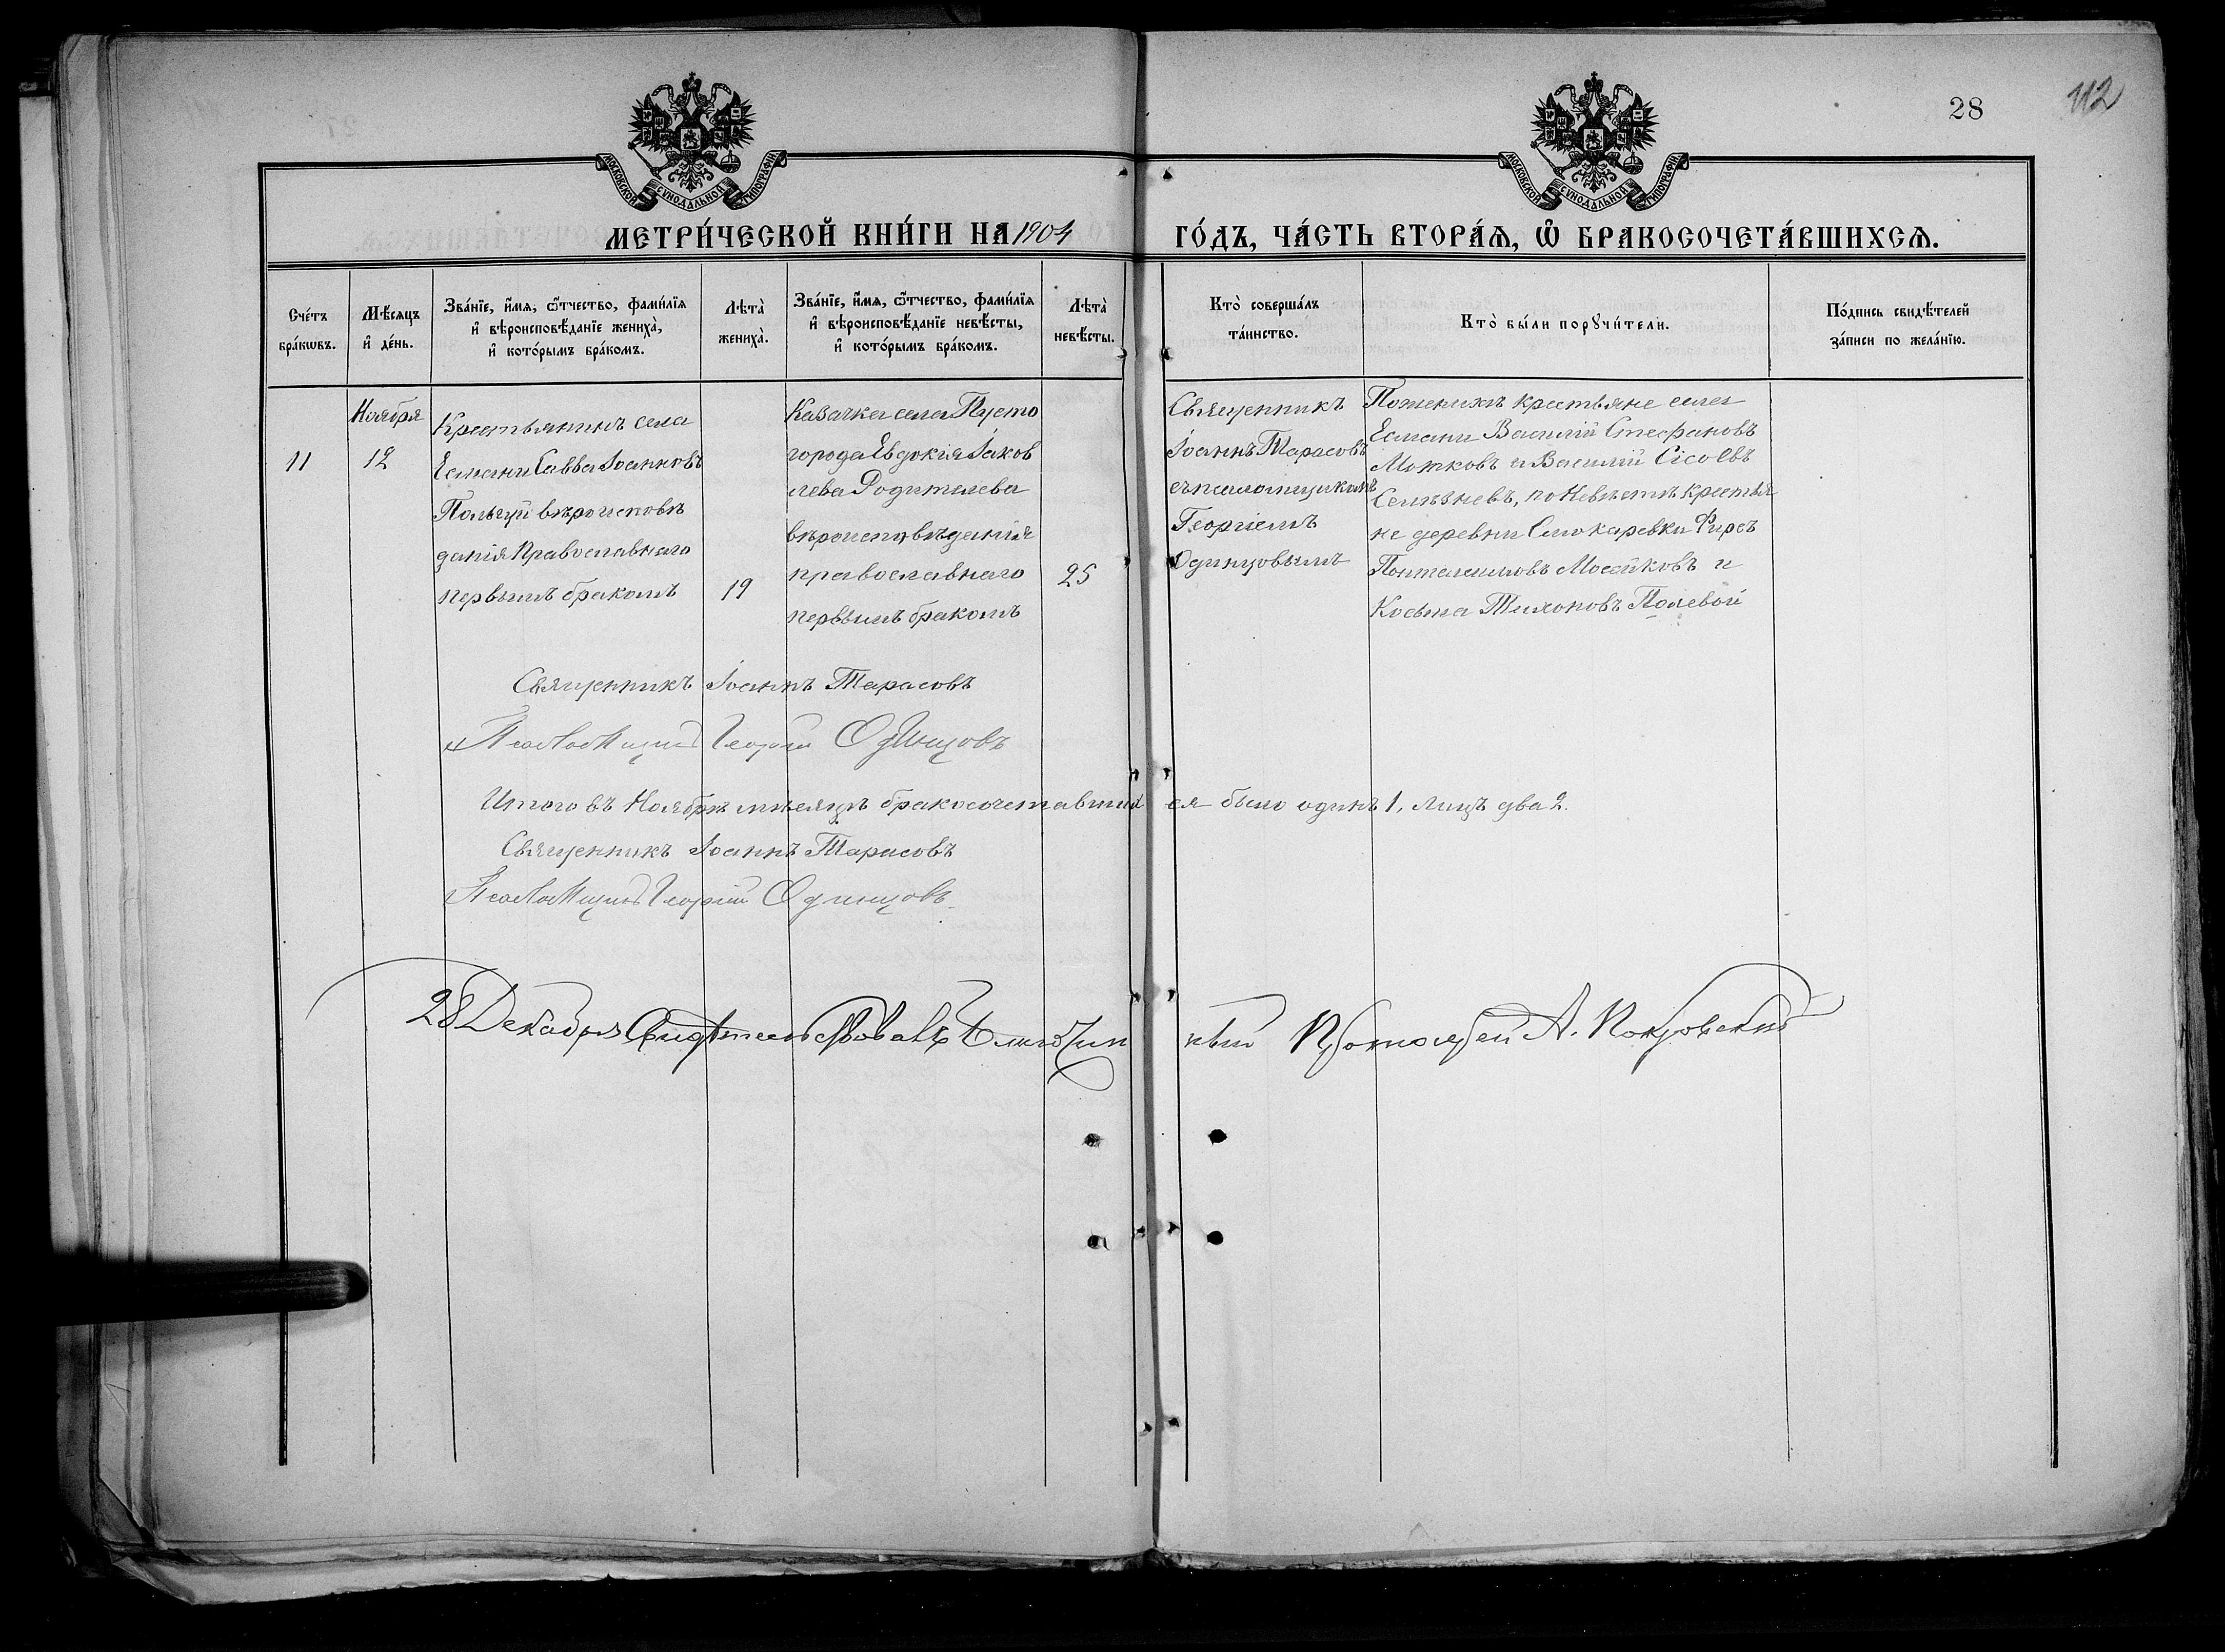 28
112
МОСКОВСКОЙ СѴНОДАЛЬНОЙ ТИПОГРАФІИ
МОСКОВСКОЙ СѴНОДАЛЬНОЙ ТИПОГРАФІИ
МЕТРИ́ЧЕСКОЙ КНИ́ГИ НА 1904 ГО́ДЪ, ЧА́СТЬ ВТОРА́Ѧ, Ѽ БРАКОСОЧЕТА́ВШИХСѦ.
Сче́тъ
бра́кѡвъ.
Мѣ́сѧцъ
и҆ де́нь.
Зва́нїе, и҆́мѧ, ѻ҆́тчество, фами́лїѧ
и҆ вѣроисповѣ́данїе жениха̀,
и҆ кото́рымъ бра́комъ.
Лѣта̀
жениха̀.
Зва́нїе, и҆́мѧ, ѻ҆́тчество, фами́лїѧ
и҆ вѣроисповѣ́данїе невѣ́сты,
и҆ кото́рымъ бра́комъ.
Лѣта̀
невѣ́сты.
Кто̀ соверша́лъ
та́инство.
Кто̀ бы́ли порꙋчи́тели.
По́дпись свидѣ́телей
за́писи по жела́нїю.
11
Ноября
12
Крестьянинъ села
Есмани Савва Іоанновъ
Польгуй вѣроисповѣ
данія Православнаго
первымъ бракомъ
19
Казачка села Пусто
города Евдокія Іаков
лева Родителева
вѣроисповѣданія
православнаго
первымъ бракомъ
25
Священникъ
Іоаннъ Тарасовъ
съ псаломщикомъ
Георгіемъ
Одинцовымъ
По женихѣ крестьяне села
Есмани Василій Стефановъ
Мотковъ и Василій Сісоевъ
Селѣзневъ, по Невѣстѣ крестья
не деревни Слюкаревки Фирсъ
Пантелеимовъ Мосейковъ и
Косьма Тихоновъ Полевой
Священникъ Іоаннъ Тарасовъ
Псаломщикъ Георгій Одинцовъ
Итого въ Ноябрѣ мѣсяцѣ бракосочетавших ся было одинъ 1, лицъ два 2.
Священникъ Іоаннъ Тарасовъ
Псаломщикъ Георгій Одинцовъ
28 Декабря Свидѣтельствовалъ Благочин ный Протоіерей А. Покровскій